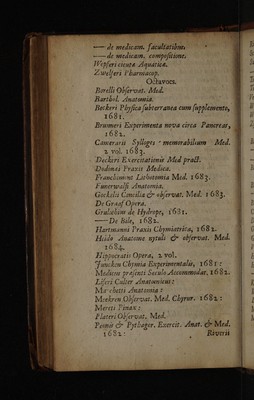 —— de medicam. facultatibus.
—— de medicam. compositione.
Wepferi cicutæ Aquaticæ.
Zwelferi Pharmacop.
Octavoes.
Borelli Observat. Med.
Barthol. Anatomia.
Beckeri Physica subterranea cum supplemento,
1681.
Brunneri Experimenta nova circa Pancreas,
1682.
Camerarii Sylloges memorabilium Med.
2 vol. 1683.
Deckeri Exercitationes Med pract.
Dodonæi Praxis Medica.
Franchimont Lithotomia Med. 1683.
Anatomia.
Gockelii Consilia & observat. Med. 1683.
De Graaf Opera.
de Hydrope, 1681.
—— De Bile, 1682.
Hartmanni Praxis Chymiatrica, 1682.
Heide Anatome mytuli & observat. Med.
1684.
Hippocratis Opera, 2 vol.
Juncken Chymia Experimentalis, 1681:
Medicus præsenti Seculo Accommodat. 1682.
Liseri Culter Anatomicus:
Marchetti Anatomia:
Meekren Observat. Med. Chyrur. 1682:
Mereti Pinax:
Plateri Observat. Med.
& Pythagor. Exercit. Anat. & Med.
1682: Riverii